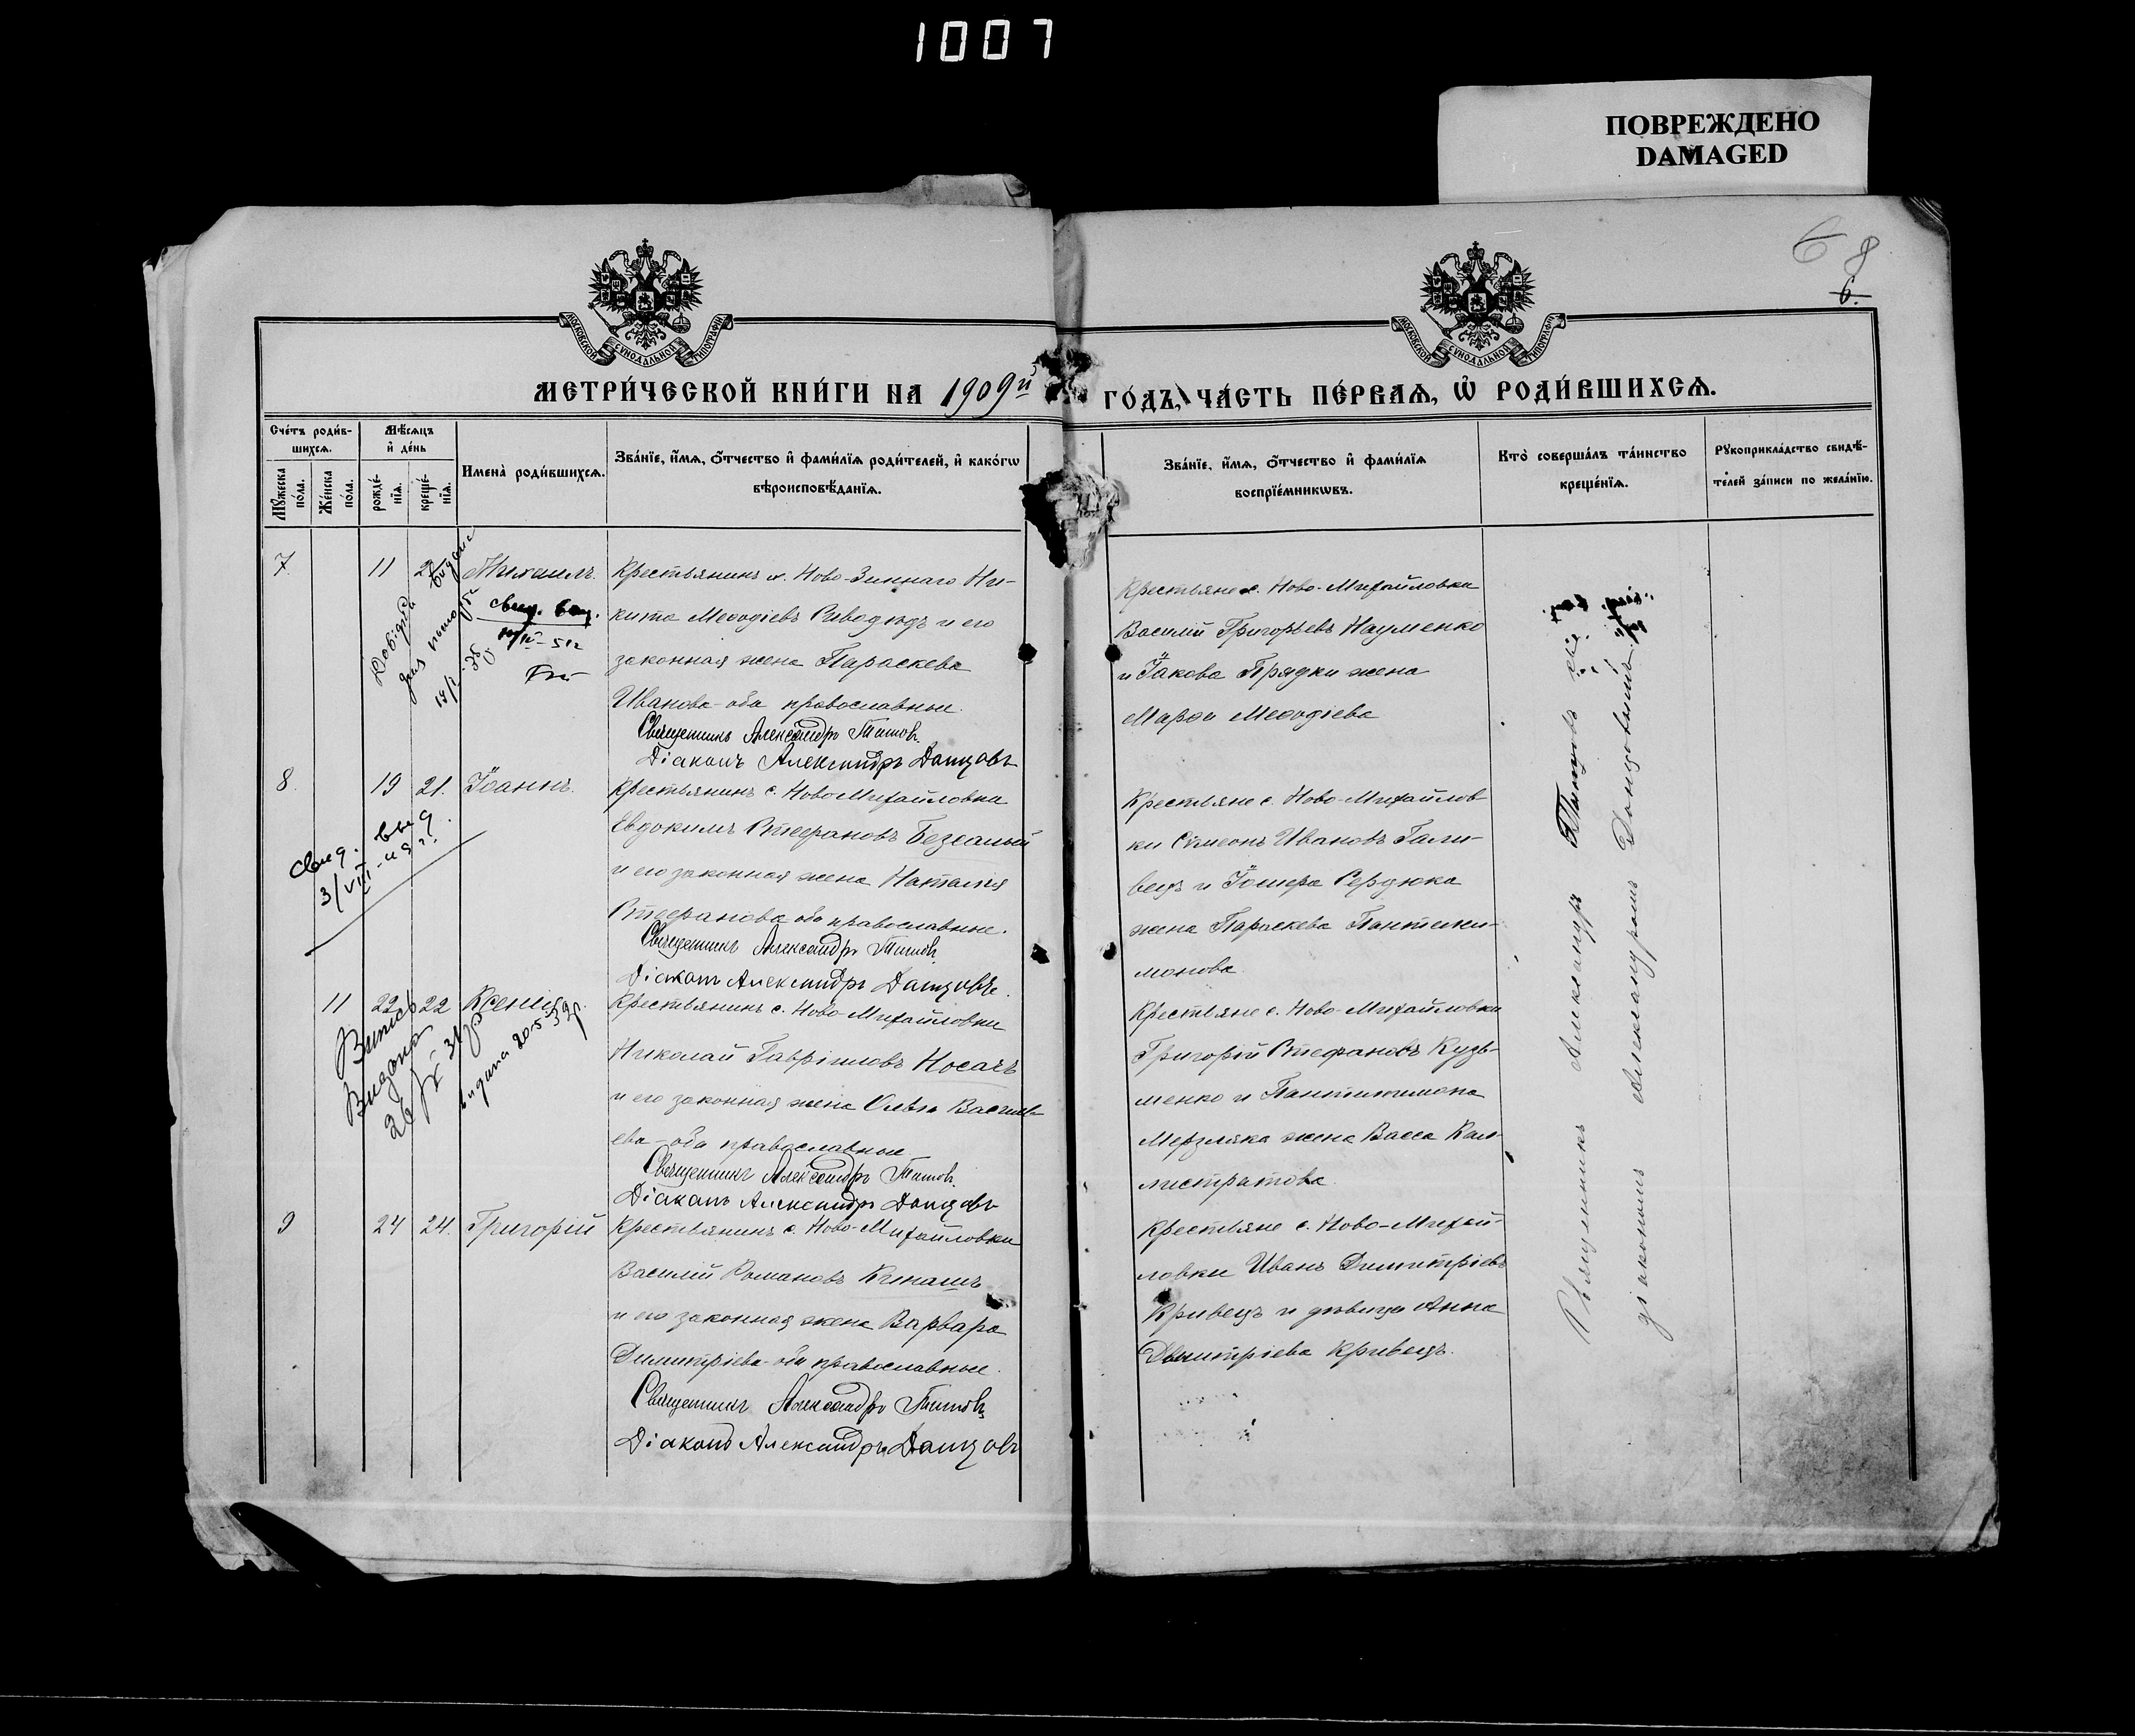 1007
ПОВРЕЖДЕНО
DAMAGED
6 8
6.
МОСКОВСКОЙ СѴНОДАЛЬНОЙ ТИПОГРАФІИ
МОСКОВСКОЙ СѴНОДАЛЬНОЙ ТИПОГРАФІИ
МЕТРИ́ЧЕСКОЙ КНИ́ГИ НА 1909й ГО́ДЪ, ЧА́СТЬ ПЕ́РВАѦ, Ѡ҆ РОДИ́ВШИХСѦ.
Сче́тъ роди́в-
шихсѧ.
Мѣ́сѧцъ
и҆ де́нь
Мꙋ́жеска
по́ла.
Же́нска
по́ла.
рожде́-
нїѧ.
креще́-
нїѧ.
Имена̀ роди́вшихсѧ.
Зва́нїе, и҆́мѧ, ѻ҆́тчество и҆ фами́лїѧ роди́телей, и҆ како́гѡ
вѣроисповѣ́данїѧ.
Зва́нїе, и҆́мѧ, ѻ҆́тчество и҆ фами́лїѧ
воспрїе́мникѡвъ.
Кто̀ соверша́лъ та́инство
креще́нїѧ.
Рꙋкоприкла́дство свидѣ́-
телей за́писи по жела́нїю.
7. 11 21 Михаилъ. Крестьянинъ х. Ново-Зиннаго Ни-
кита Меѳодіевъ Риводѣдъ и его
законная жена Параскева
Иванова оба православные.
Священникъ Александръ Титовъ.
Діаконъ Александръ Данцовъ
Крестьяне с. Ново-Михайловки
Василій Григорьевъ Науменко
и Іакова Прядки жена
Марѳа Меѳодіева
Довідка видана
свид. выд.
8. 19 21. Іоаннъ. Крестьянинъ с. Ново Михайловки
Евдокимъ Стефановъ Безсалый
и его законная жена Наталія
Стефанова оба православные.
Священникъ Александръ Титовъ.
Діаконъ Александръ Данцовъ.
Крестьяне с. Ново-Михайлов-
ки Сѵмеонъ Ивановъ Гали-
вецъ и Іосифа Сердюка
жена Параскева Пантели-
монова.
свид. выд.
3/VIII-
11 22 22 Ксенія. Крестьянинъ с. Ново-Михайловки
Николай Гавріиловъ Носачъ
и его законная жена Ольга Василь-
ева-оба православные
Священникъ Александръ Титовъ.
Діаконъ Александръ Данцовъ
Крестьяне с. Ново-Михайловки
Григорій Стефановъ Кузь-
менко и Пантилимона
Мерзляка жена Васса Кал-
листратова.
Видано
видана 20-5-39р.
9 24 24. Григорій Крестьянинъ с. Ново-Михайловки
Василій Романовъ Кинашъ
и его законная жена Варвара
Димитріева-оба православные.
Священникъ Александръ Титовъ
Діаконъ Александръ Данцовъ
Крестьяне с. Ново-Михай-
ловки Иванъ Димитріевъ
Кривецъ и дѣвица Анна
Димитріева Кривецъ.
Священникъ Александръ Титовъ съ
діакономъ Александромъ Данцовымъ.